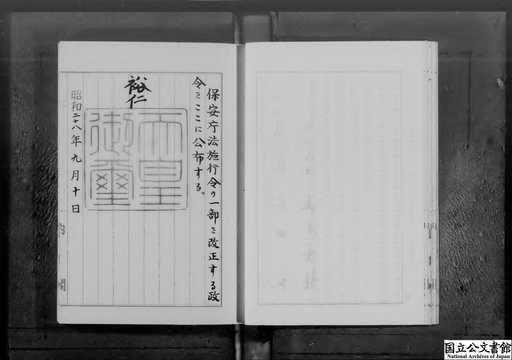 保安庁法施行令の一部を改正する政
令をここに公布する。
裕仁
天皇
御璽
昭和二十八年九月十日
内閣
国立公文書館
National Archives of Japan